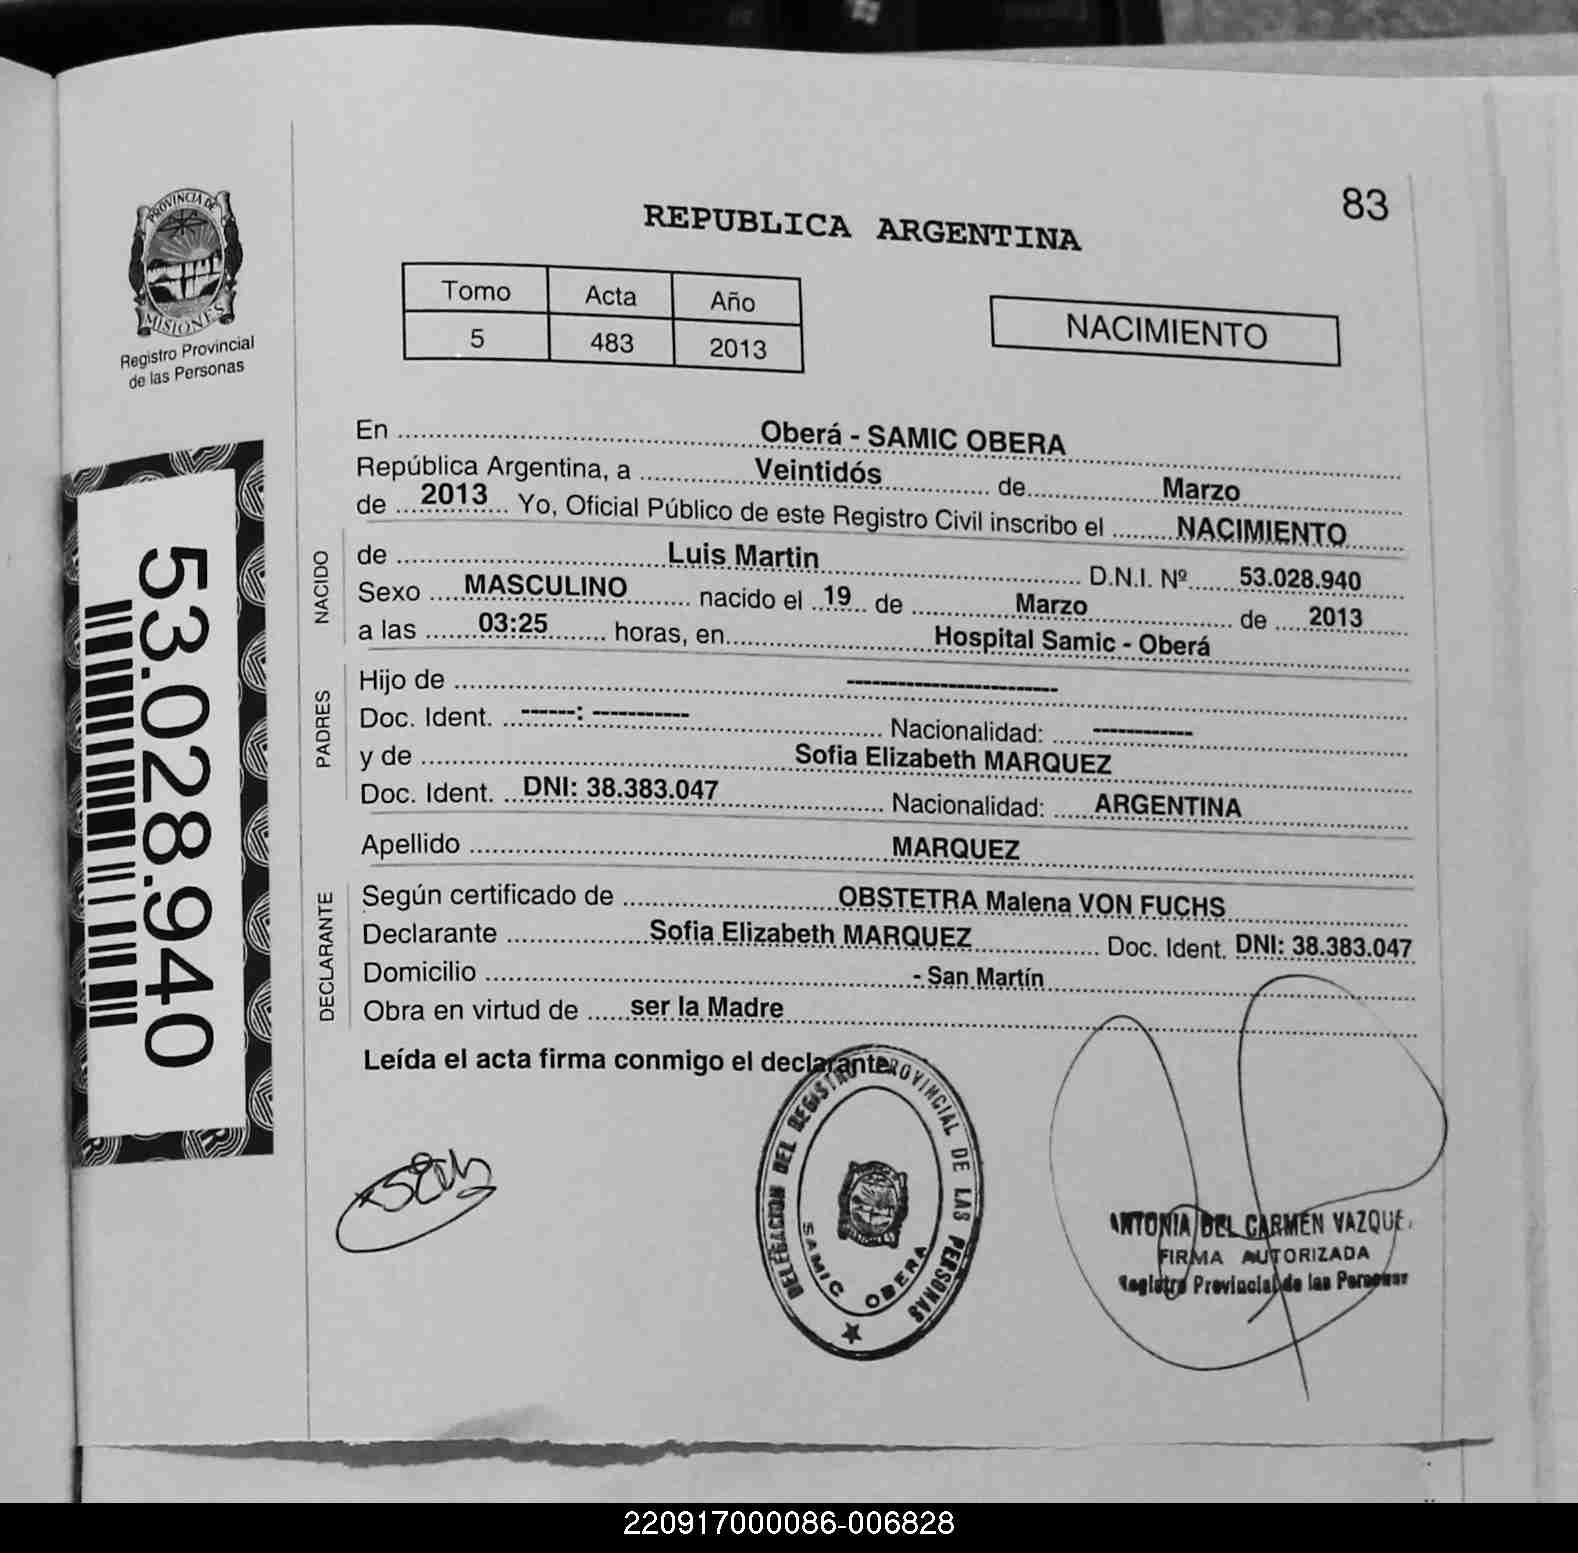 83
REPUBLICA ARGENTINA
PROVINCIA DE
MISIONES
Registro Provincial
de las Personas
Tomo Acta Año
5 483 2013
NACIMIENTO
En Oberá - SAMIC OBERA
República Argentina, a Veintidós de Marzo
de 2013 Yo, Oficial Público de este Registro Civil inscribo el NACIMIENTO
NACIDO
de Luis Martin D.N.I. Nº 53.028.940
Sexo MASCULINO nacido el 19 de Marzo de 2013
a las 03:25 horas, en Hospital Samic - Oberá
PADRES
Hijo de -------------------------
Doc. Ident. ------: ----------- Nacionalidad: ------------
y de Sofia Elizabeth MARQUEZ
Doc. Ident. DNI: 38.383.047 Nacionalidad: ARGENTINA
Apellido MARQUEZ
DECLARANTE
Según certificado de OBSTETRA Malena VON FUCHS
Declarante Sofia Elizabeth MARQUEZ Doc. Ident. DNI: 38.383.047
Domicilio - San Martín
Obra en virtud de ser la Madre
Leída el acta firma conmigo el declarante.
53.028.940
DELEGACION DEL REGISTRO PROVINCIAL DE LAS PERSONAS
SAMIC OBERA
ANTONIA DEL CARMEN VAZQUE
FIRMA AUTORIZADA
Registro Provincial de las Personas
220917000086-006828